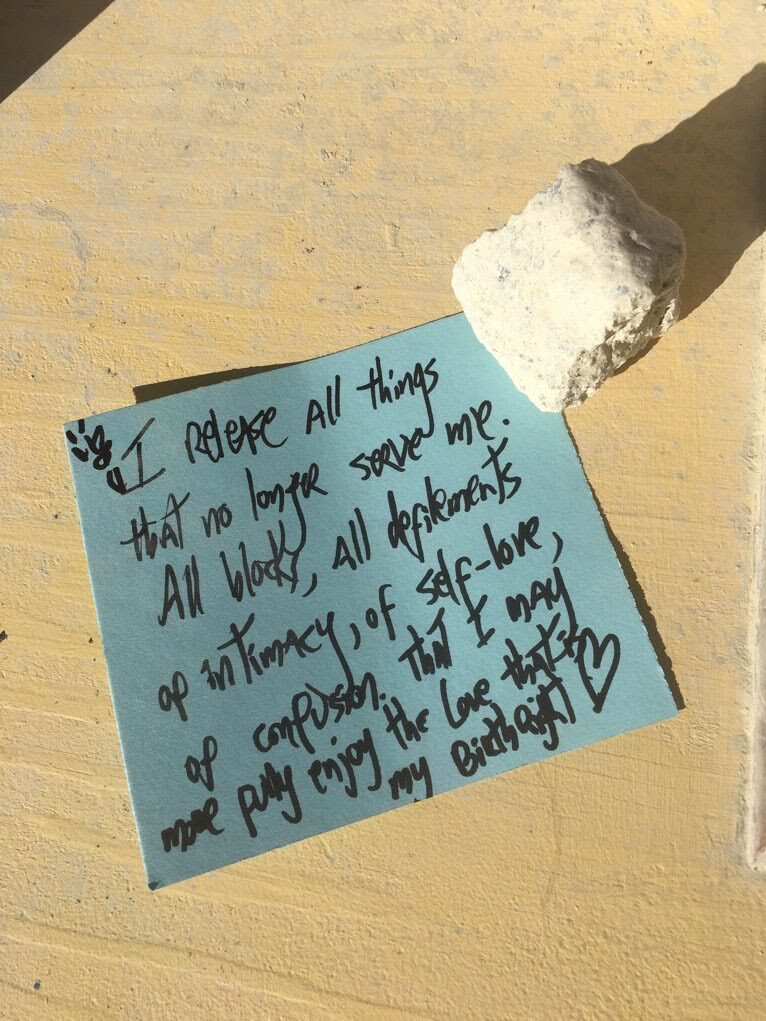 I Release All things
that no longer serve me.
All blocks, all defilements
of intimacy, of self-love,
of confusion. That I may
more fully enjoy the love that is
my Birthright